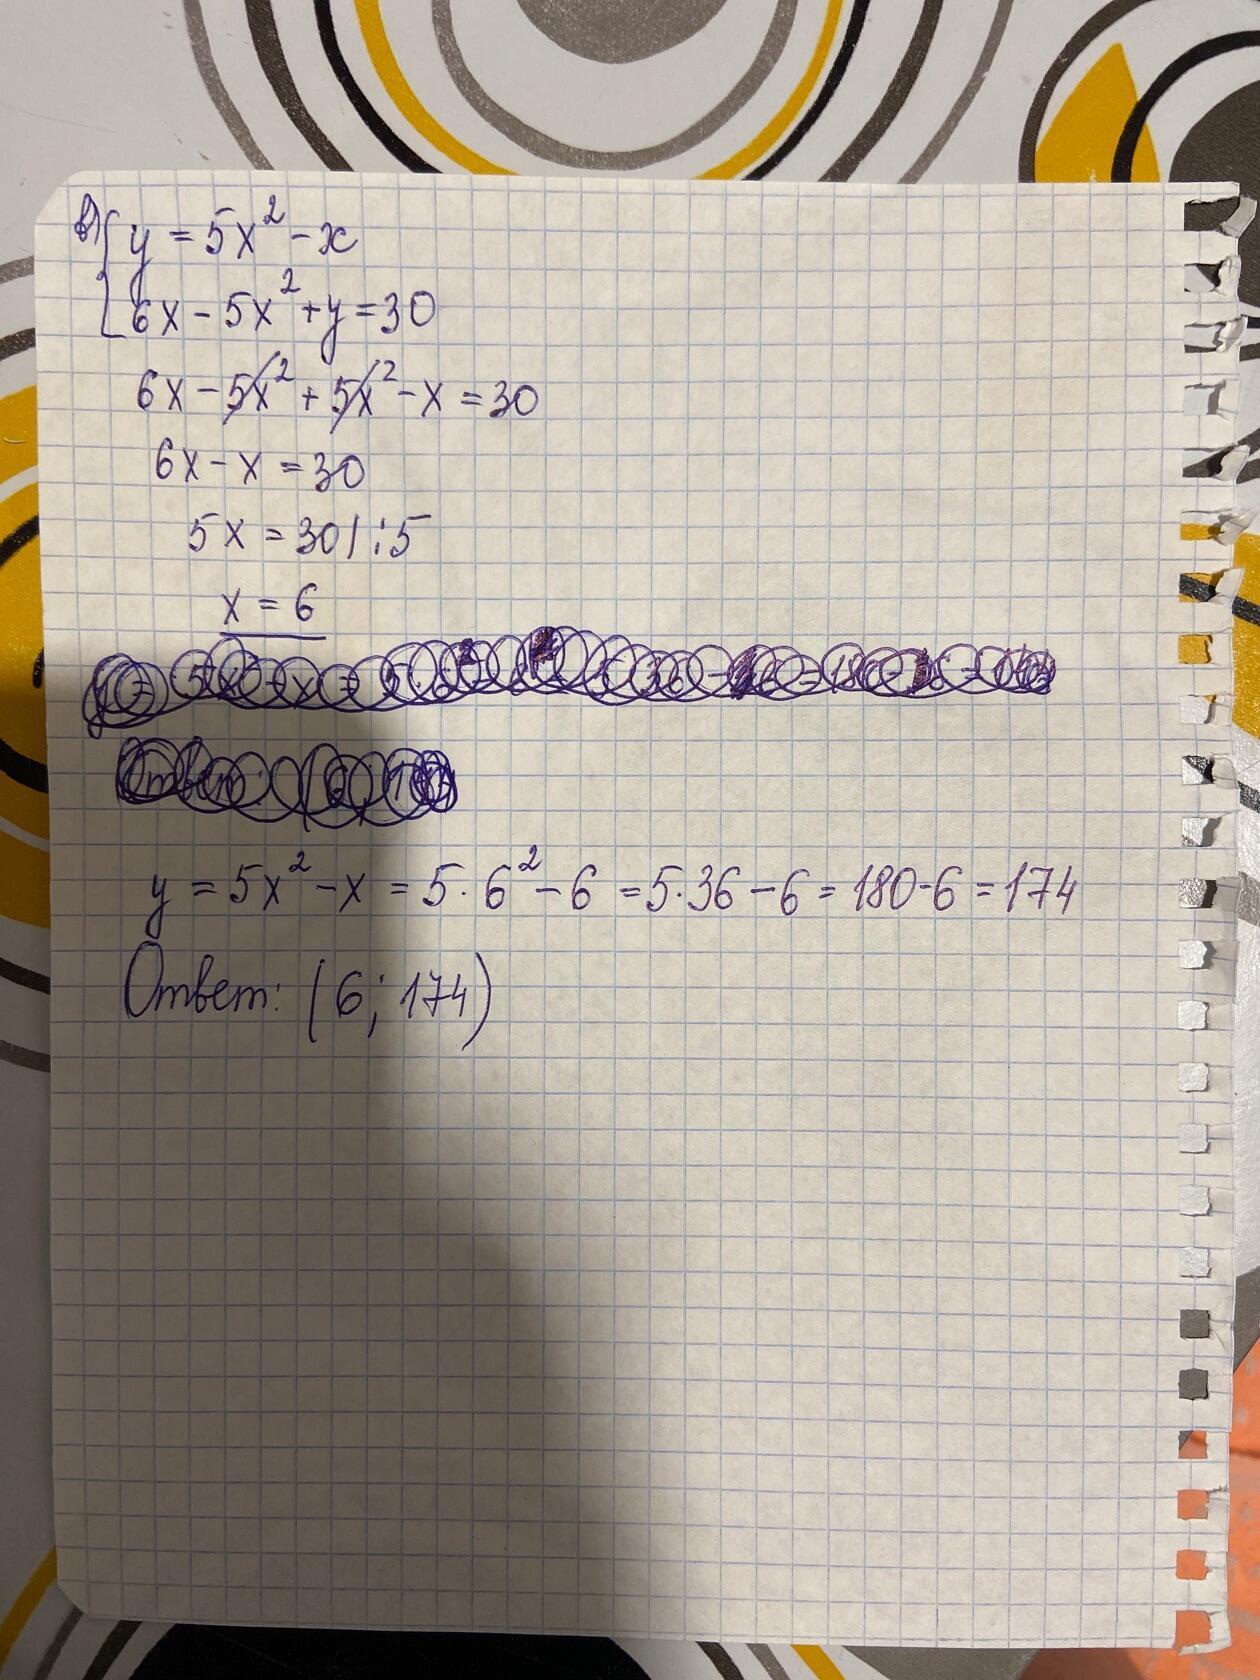 в) { y = 5x² - x
6x - 5x² + y = 30
6x - 5x² + 5x² - x = 30
6x - x = 30
5x = 30 | :5
x = 6
y = 5x² - x = 5 · 6² - 6 = 5 · 36 - 6 = 180 - 6 = 174
Ответ: (6; 174)